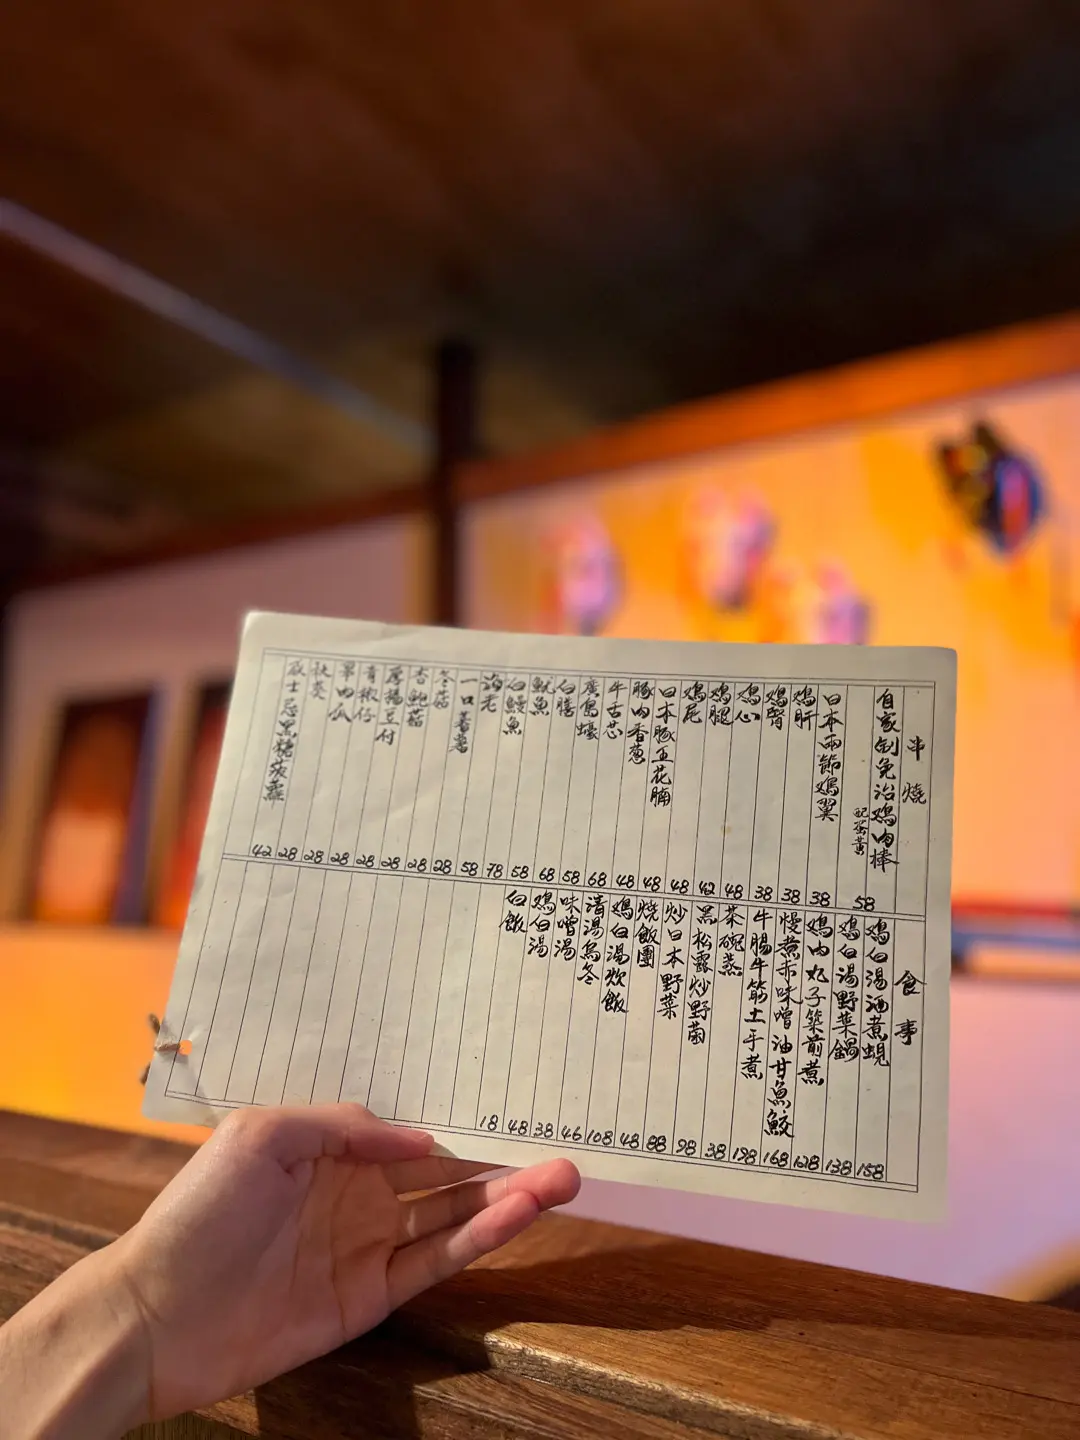 串燒
自家制免治鸡肉棒 配蛋黃 58
日本兩節鸡翼 38
鸡肝 38
鸡腎 38
鸡心 48
鸡腿 42
鸡尾 48
日本豚五花腩 48
豚肉香葱 48
牛舌芯 68
廣島蠔 58
白膳 68
魷魚 58
白鰻魚 78
海老 58
一口薯薯 28
冬菇 28
杏鮑菇 28
厚揚豆付 28
青椒仔 28
翠肉瓜 28
秋葵 28
威士忌黑糖菠蘿 42
食事
鸡白湯酒煮蜆 158
鸡白湯野菜鍋 138
鸡肉丸子築前煮 128
慢煮赤味噌油甘魚鮫 168
牛腸牛筋土手煮 198
茶碗蒸 38
黑松露炒野菌 98
炒日本野菜 88
燒飯團 48
鸡白湯炊飯 108
清湯烏冬 46
味噌湯 38
鸡白湯 48
白飯 18